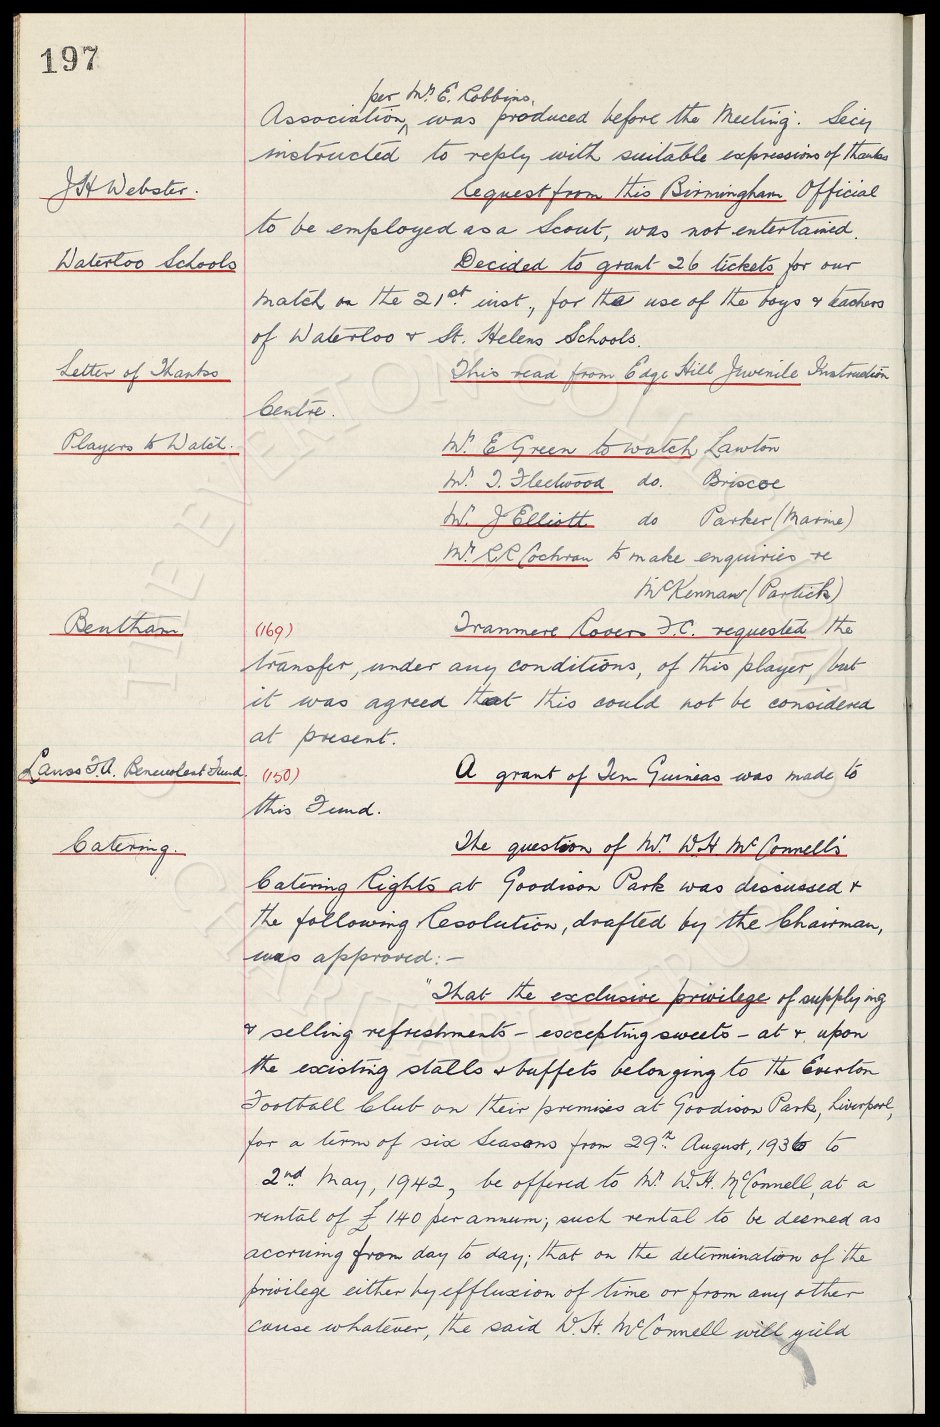 197
per Mr. E. Robbins,
Association, was produced before the Meeting. Secy
instructed to reply with suitable expressions of thanks
J H Webster. Request from this Birmingham Official
to be employed as a Scout, was not entertained.
Waterloo Schools Decided to grant 26 tickets for our
match on the 21st. inst., for the use of the boys & teachers
of Waterloo & St. Helens Schools.
Letter of Thanks This read from Edge Hill Juvenile Instruction
Centre.
Players to Watch. Mr. E Green to watch Lawton
Mr. T. Fleetwood do. Briscoe
Mr. J Elliott do Parker (Marine)
Mr. R R Cochran to make enquiries re
McKennan (Partick)
Bentham (169) Tranmere Rovers F.C. requested the
transfer, under any conditions, of this player, but
it was agreed that this could not be considered
at present.
Lancs F.A. Benevolent Fund. (150) A grant of Ten Guineas was made to
this Fund.
Catering. The question of Mr. W.H. McConnell's
Catering Rights at Goodison Park was discussed &
the following Resolution, drafted by the Chairman,
was approved:-
"That the exclusive privilege of supplying
& selling refreshments - excepting sweets - at & upon
the existing stalls & buffets belonging to the Everton
Football Club on their premises at Goodison Park, Liverpool,
for a term of six Seasons from 29th August, 1936 to
2nd May, 1942, be offered to Mr. W.H. McConnell, at a
rental of £140 per annum; such rental to be deemed as
accruing from day to day; that on the determination of the
privilege either by effluxion of time or from any other
cause whatever, the said W.H. McConnell will yield